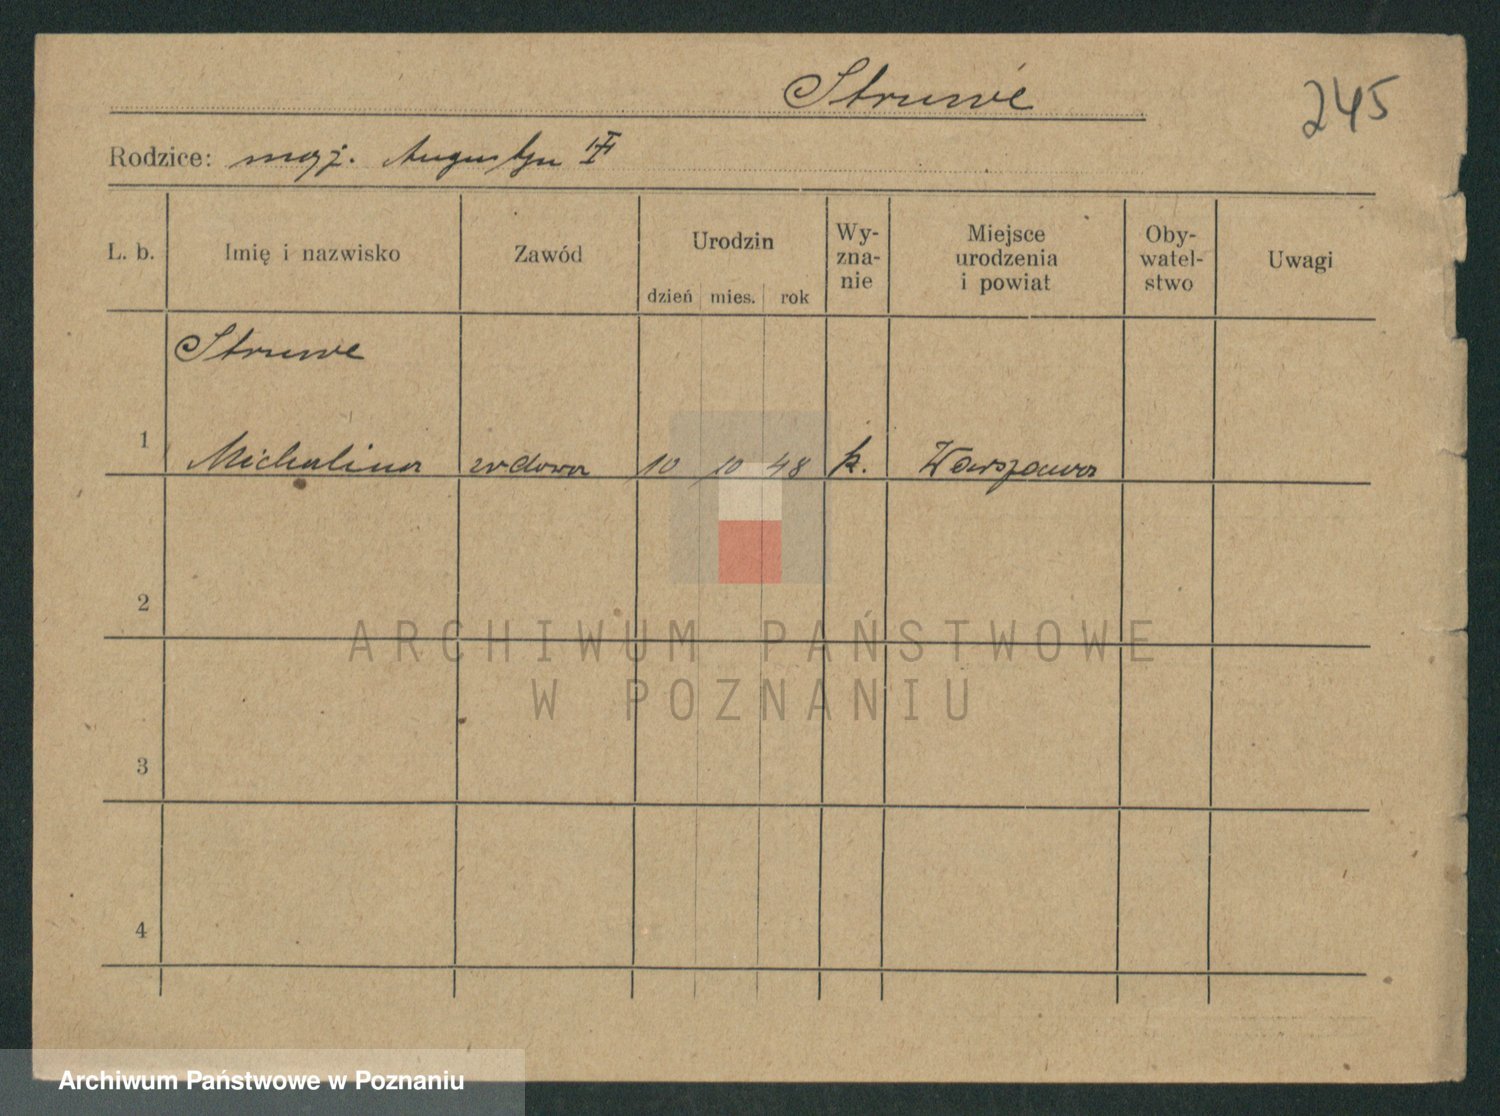 Struwe
245
Rodzice: mąż. Augustyn
L. b.
Imię i nazwisko
Zawód
Urodzin
dzień mies. rok
Wy-
zna-
nie
Miejsce
urodzenia
i powiat
Oby-
watel-
stwo
Uwagi
Struwe
1 Michalina wdowa 10 10 48 k. Warszawa
2
3
4
ARCHIWUM PAŃSTWOWE
W POZNANIU
Archiwum Państwowe w Poznaniu